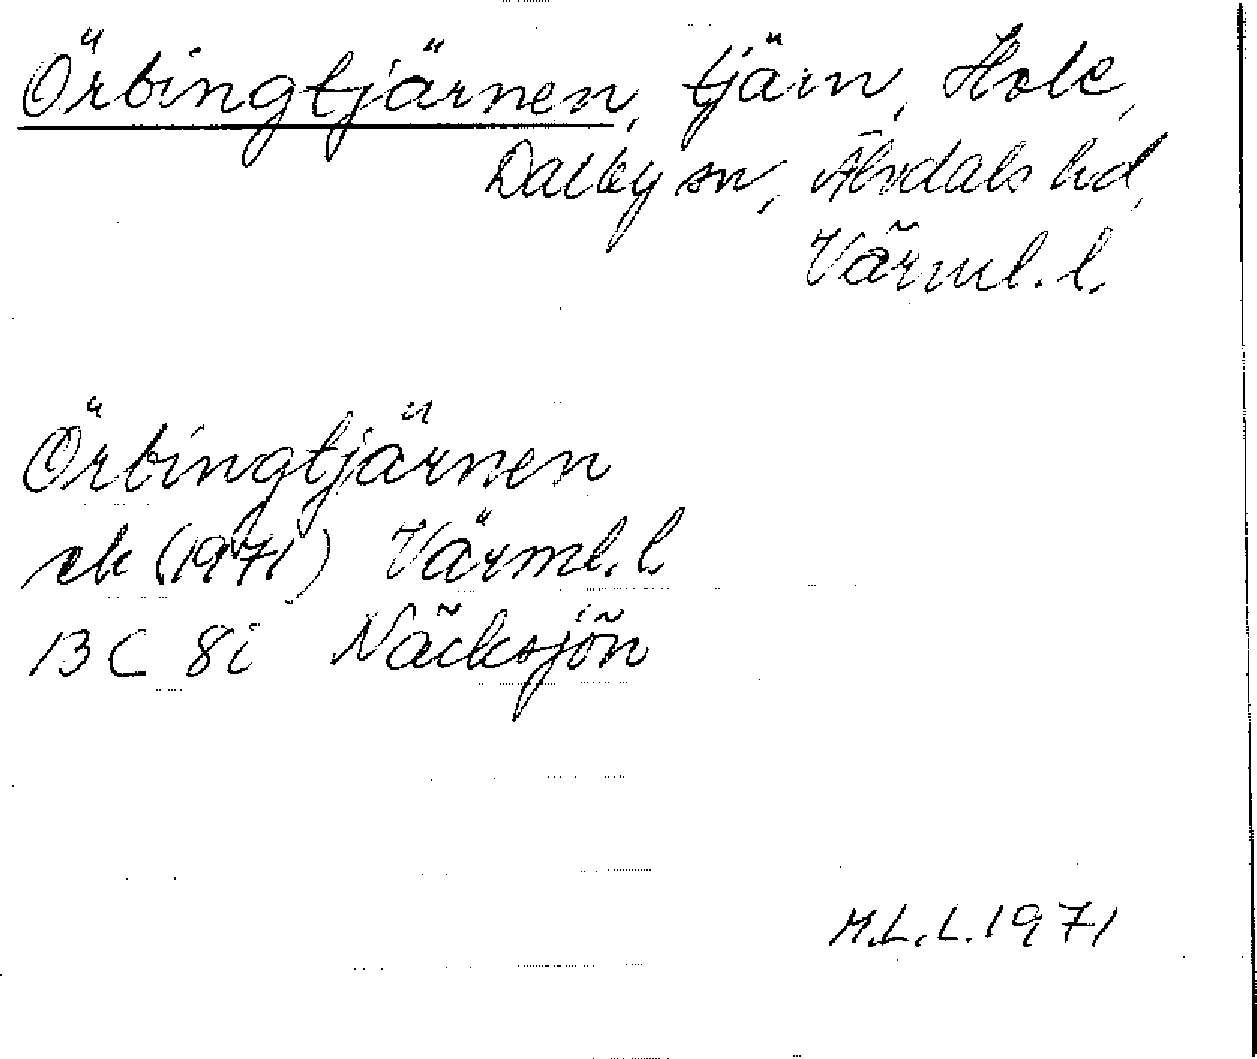 Örbingtjärnen, tjärn, Hole,
Dalby sn, Älvdals hd,
Värml. l.
Örbingtjärnen
ek (1971) Värml. l.
13 C 8i Näcksjön
M.L.L. 1971